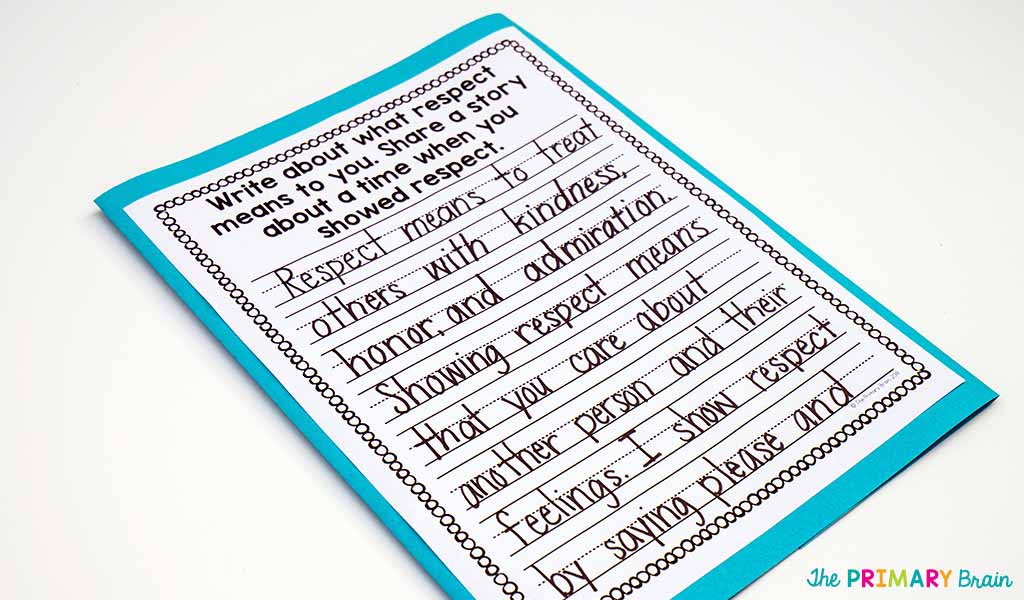 Write about what respect
means to you. Share a story
about a time when you
showed respect.
Respect means to treat
others with kindness,
honor, and admiration.
Showing respect means
that you care about
another person and their
feelings. I show respect
by saying please and
© The Primary Brain
The PRIMARY Brain